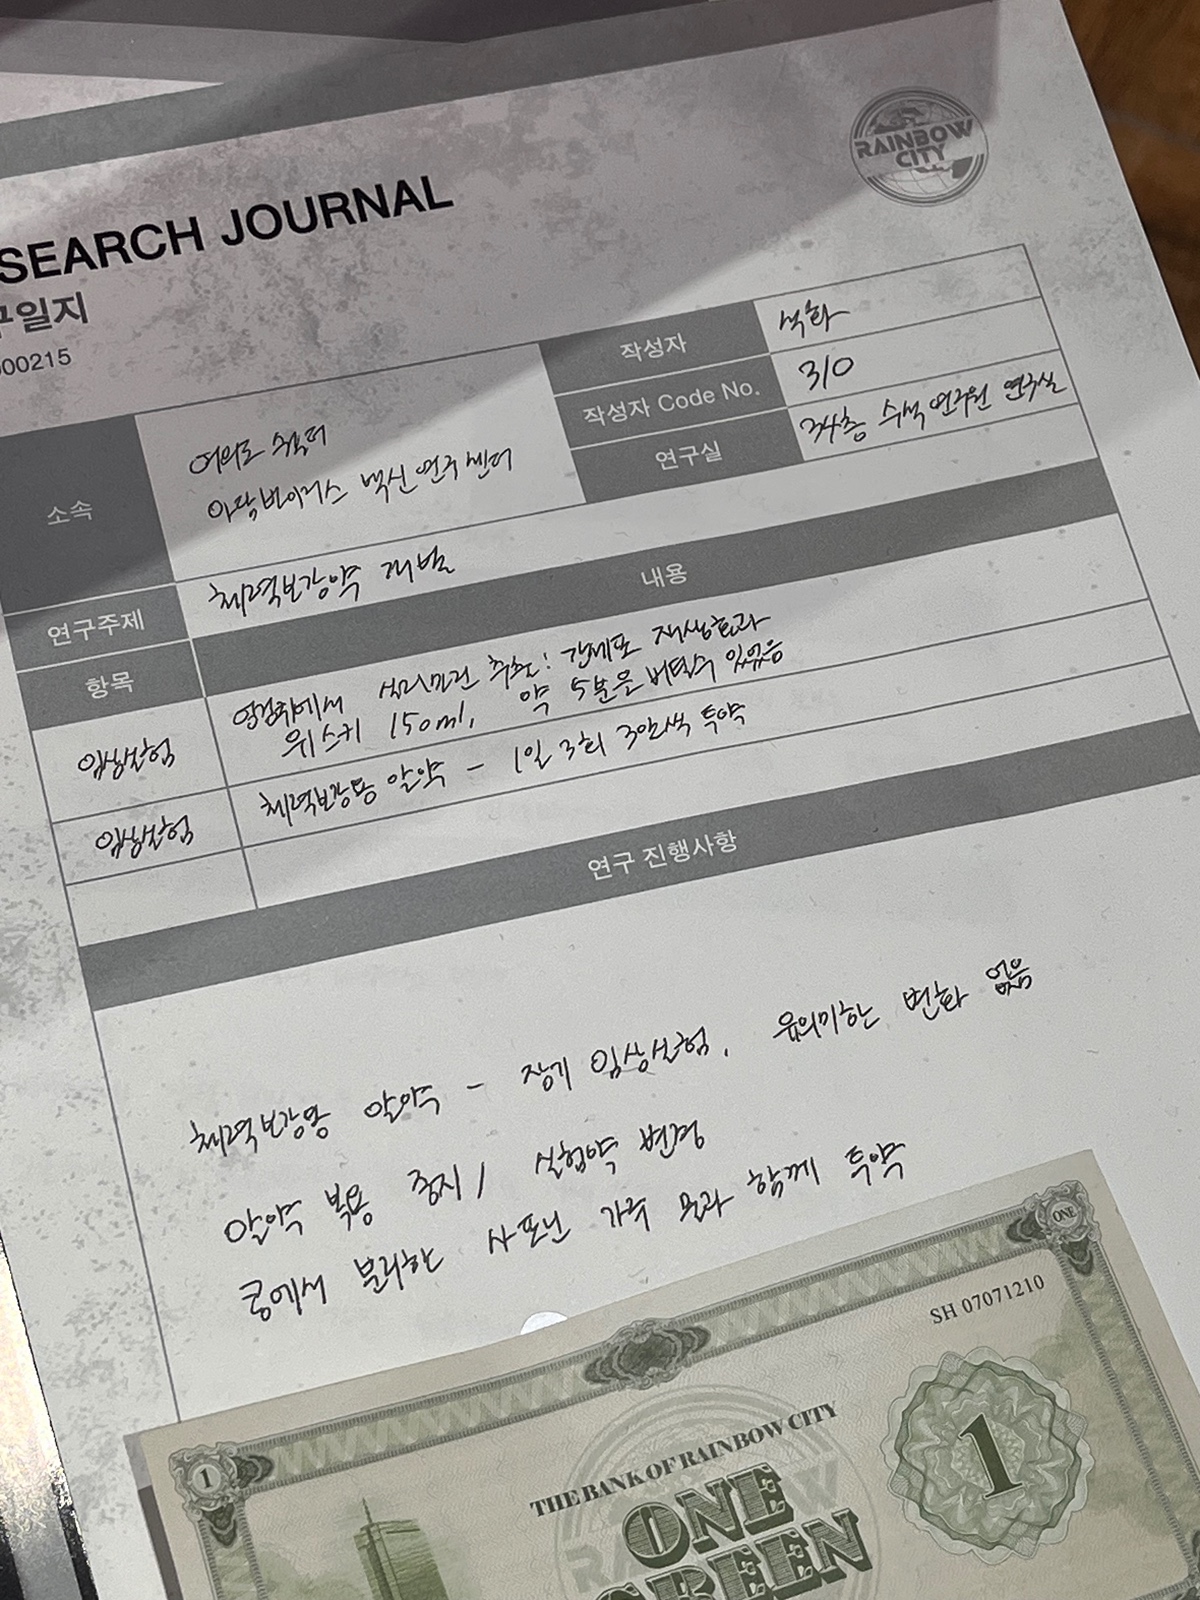 RAINBOW
CITY
SEARCH JOURNAL
구일지
000215
작성자
석화
작성자 Code No.
310
연구실
34층 수석연구원 연구실
소속
여의도 쉘터
아담바이러스 백신 연구센터
연구주제
체력보강약 개발
항목
내용
임상실험
엉겅퀴에서 실리마린 추출: 간세포 재생효과
위스키 150ml, 약 5분은 버틸수 있었음
임상실험
체력보강용 알약 - 1일 3회 3알씩 투약
연구 진행사항
체력보강용 알약 - 장기 임상실험, 유의미한 변화 없음
알약 복용 중지 / 실험약 변경
콩에서 분리한 사포닌 가루 물과 함께 투약
ONE
SH 07071210
1
THE BANK OF RAINBOW CITY
ONE
GREEN
1